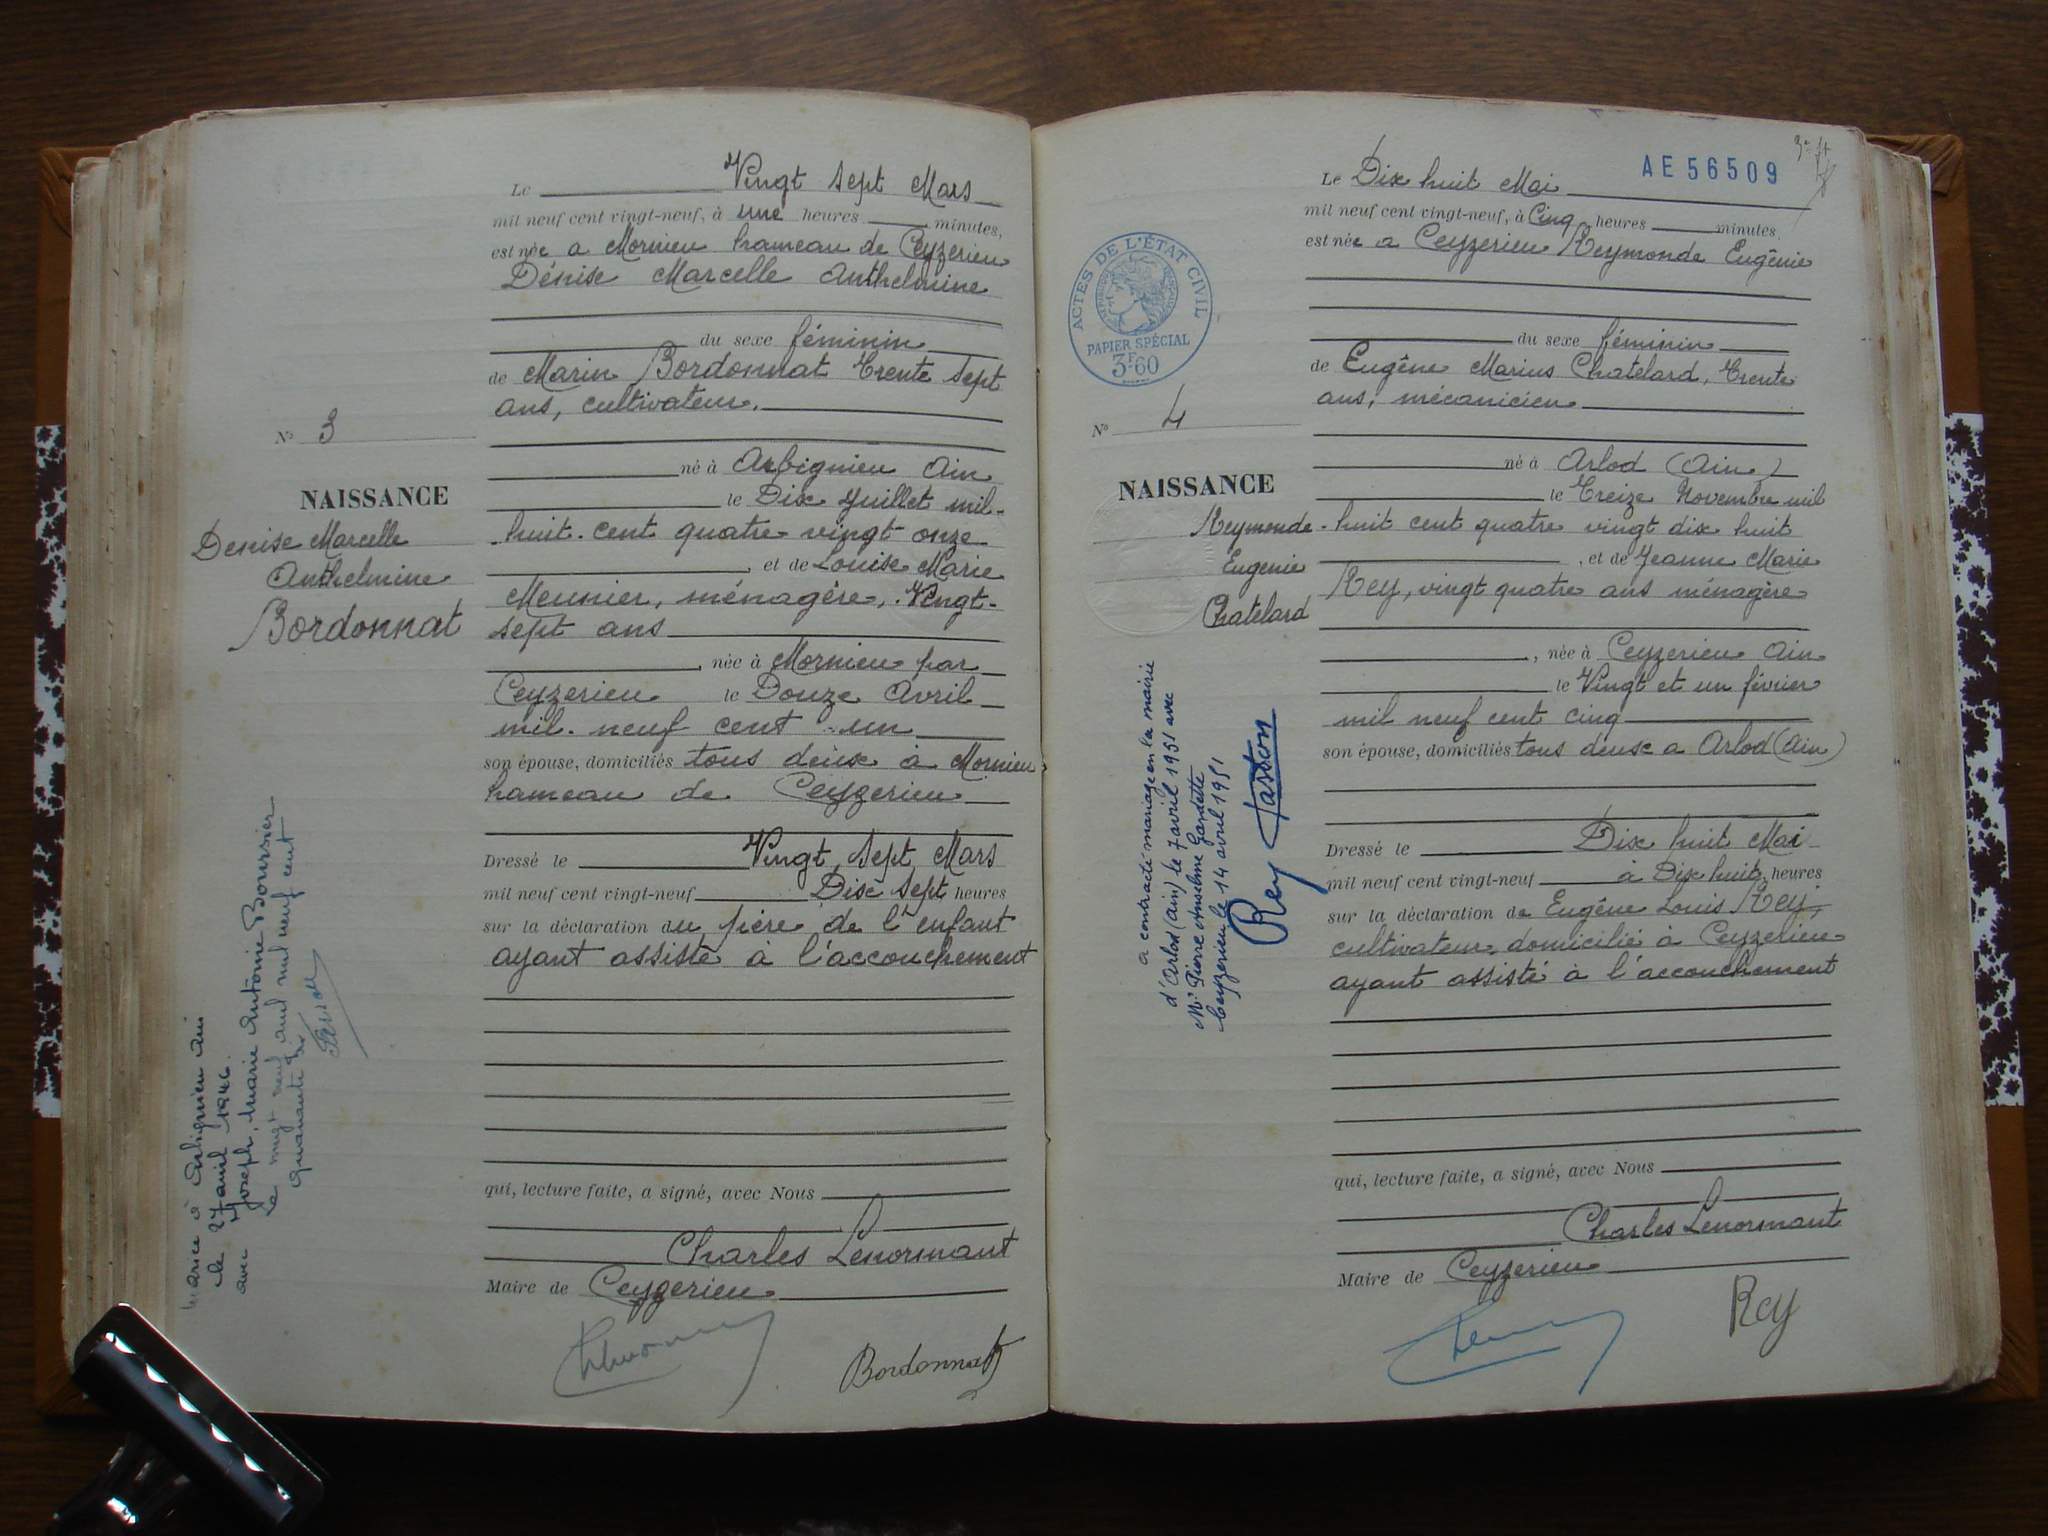 Le Vingt sept Mars
mil neuf cent vingt-neuf, à une heures minutes,
est née a Mornieu hameau de Ceyzerieu
Dénise Marcelle Anthelmine
du sexe féminin
de Marin Bordonnat Trente sept
ans, cultivateur.
né à Arbignieu Ain
le Dix Juillet mil-
huit-cent quatre vingt onze
, et de Louise Marie
Meunier, ménagère, Vingt-
sept ans
, née à Mornieu par
Ceyzerieu le Douze Avril
mil-neuf cent un
son épouse, domiciliés tous deux à Mornieu
hameau de Ceyzerieu
Dressé le Vingt sept Mars
mil neuf cent vingt-neuf Dix sept heures
sur la déclaration du père de l'enfant
ayant assisté à l'accouchement
qui, lecture faite, a signé, avec Nous
Charles Lenormant
Maire de Ceyzerieu
Bordonnat
No 3
NAISSANCE
Denise Marcelle
Anthelmine
Bordonnat
Mariée à Arbignieu Ain
le 27 avril 1946
avec Joseph, Marie Antoine Boursier
le vingt neuf avril mil neuf cent
quarante six
AE 56509
Le Dix huit Mai
mil neuf cent vingt-neuf, à Cinq heures minutes,
est née a Ceyzerieu Reymonde Eugênie
du sexe féminin
de Eugêne Marius Chatelard, Trente
ans, mécanicien
né à Arlod (Ain)
le Treize Novembre mil
huit cent quatre vingt dix huit
, et de Jeanne Marie
Rey, vingt quatre ans ménagère
, née à Ceyzerieu Ain
le Vingt et un février
mil neuf cent cinq
son épouse, domiciliés tous deux a Arlod (Ain)
Dressé le Dix huit Mai
mil neuf cent vingt-neuf à Dix huit heures
sur la déclaration de Eugêne Louis Rey,
cultivateur, domicilié à Ceyzerieu
ayant assisté à l'accouchement
qui, lecture faite, a signé, avec Nous
Charles Lenormant
Maire de Ceyzerieu
Rey
ACTES DE L'ÉTAT CIVIL
RÉPUBLIQUE FRANÇAISE
PAPIER SPÉCIAL
3F60
No 4
NAISSANCE
Reymonde
Eugenie
Chatelard
a contracté mariage en la mairie
d'Arlod (Ain) le 7 avril 1951 avec
Mr Pierre Anselme Gardette
Ceyzerieu le 14 avril 1951
Rey Gaston